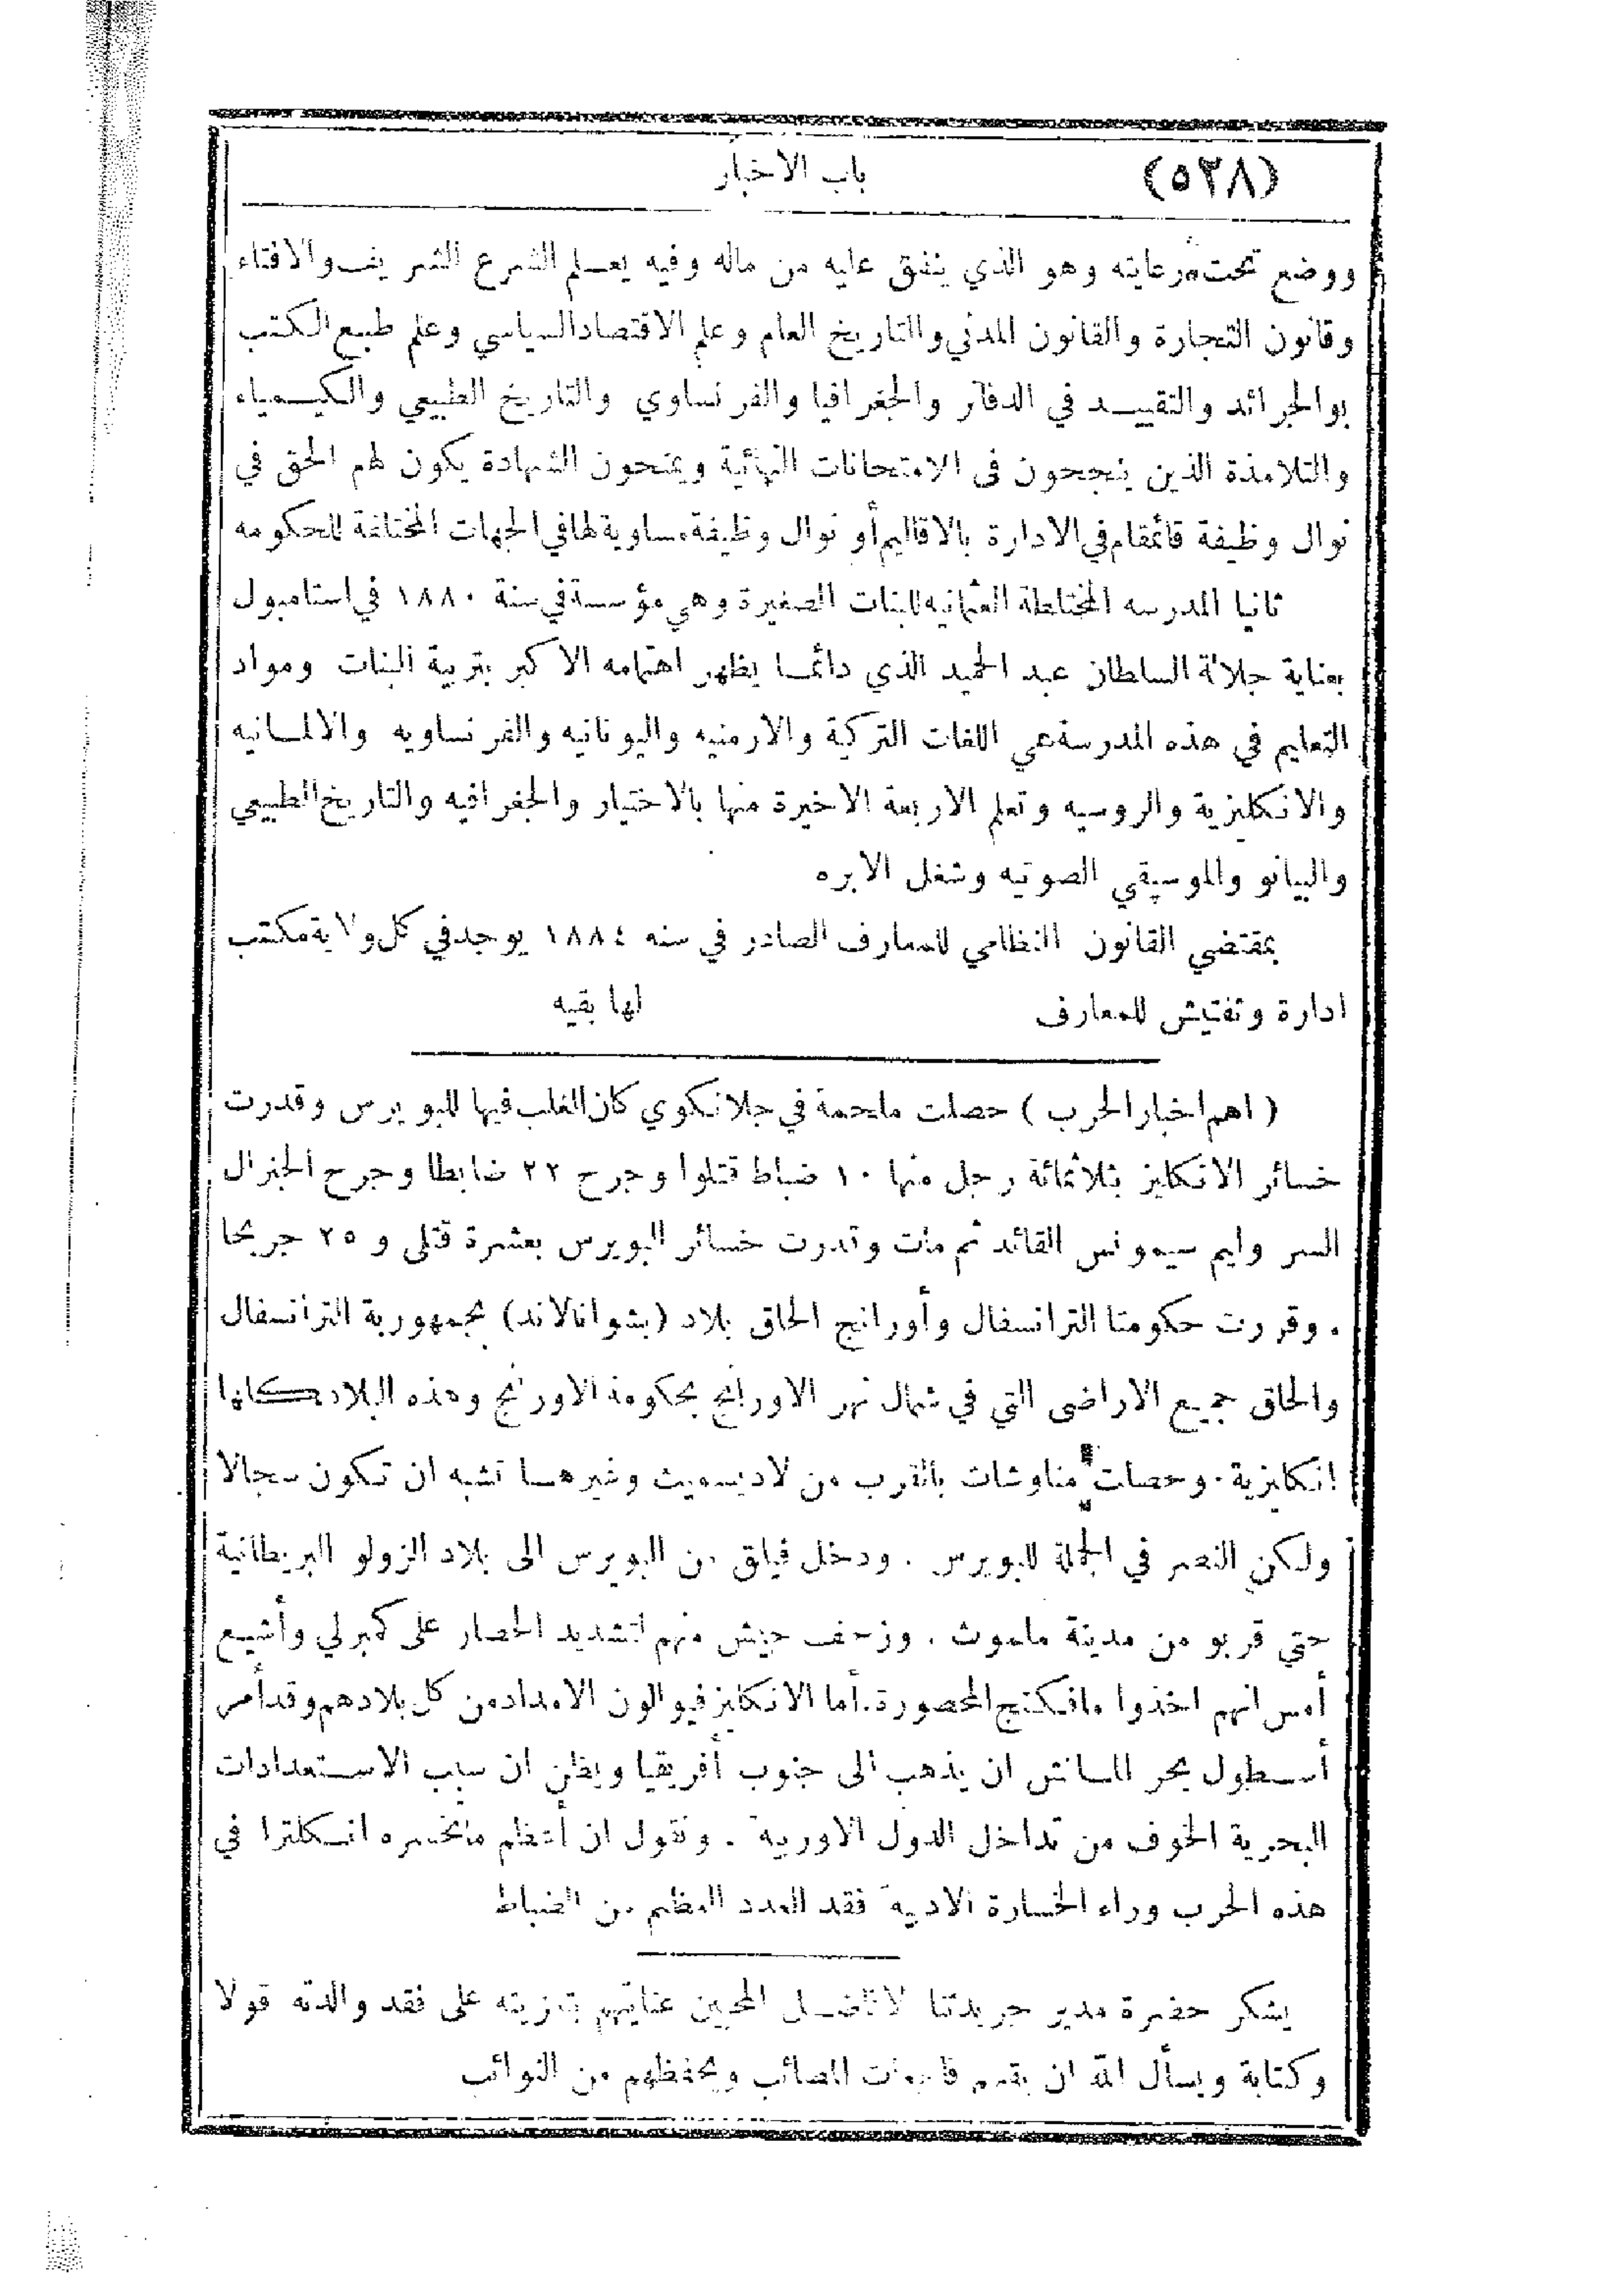 (٥٢٨) باب الاخبار
ووضع تحت رعايته وهو الذي ينفق عليه من ماله وفيه يعلم الشرع الشريف والافتاء
وقانون التجارة والقانون المدني والتاريخ العام وعلم الاقتصاد السياسي وعلم طبع الكتب
والجرائد والتقييد في الدفاتر والجغرافيا والفرنساوي والتاريخ الطبيعي والكيمياء
والتلامذة الذين ينجحون في الامتحانات النهائية ويمنحون الشهادة يكون لهم الحق في
نوال وظيفة قائمقام في الادارة بالاقاليم أو نوال وظيفة مساوية لها في الجهات المختلفة للحكومه
ثانيا المدرسه المختلطة العثمانيه للبنات الصغيرة وهي مؤسسة في سنة ١٨٨٠ في استامبول
بعناية جلالة السلطان عبد الحميد الذي دائما يظهر اهتمامه الاكبر بتربية البنات ومواد
التعليم في هذه المدرسة هي اللغات التركية والارمنيه واليونانيه والفرنساويه والالمانيه
والانكليزية والروسيه وتعلم الاربعة الاخيرة منها بالاختيار والجغرافيه والتاريخ الطبيعي
والبيانو والموسيقي الصوتيه وشغل الابره
بمقتضي القانون النظامي للمعارف الصادر في سنه ١٨٨٤ يوجد في كل ولاية مكتب
ادارة وتفتيش للمعارف لها بقيه
( اهم اخبار الحرب ) حصلت ملحمة في جلانكوي كان الغلب فيها للبويرس وقدرت
خسائر الانكليز بثلاثمائة رجل منها ١٠ ضباط قتلوا وجرح ٢٢ ضابطا وجرح الجنرال
السر وليم سيمونس القائد ثم مات وقدرت خسائر البويرس بعشرة قتلى و ٢٥ جريحا
. وقررت حكومتا الترانسفال وأورانج الحاق بلاد (بشوانالاند) بجمهورية الترانسفال
والحاق جميع الاراضى التي في شمال نهر الاورانج بحكومة الاورنج وهذه البلاد كلها
انكليزية . وحصلت مناوشات بالقرب من لاديسميث وغيرهـا تشبه ان تكون سجالا
ولكن النصر في الجملة للبويرس . ودخل فيلق من البويرس الى بلاد الزولو البريطانية
حتي قربو من مدينة ملموث . وزحف جيش منهم لتشديد الحصار على كمبرلي وأشيع
أمس انهم اخذوا مافكنج المحصورة. أما الانكليز فيوالون الامداد من كل بلادهم وقد أمر
أسطول بحر المانش ان يذهب الى جنوب أفريقيا ويظن ان سبب الاستعدادات
البحرية الخوف من تداخل الدول الاوربية . ونقول ان أعظم ماتخسره انكلترا في
هذه الحرب وراء الخسارة الادبية فقد العدد العظيم من الضباط
يشكر حضرة مدير جريدتنا لافاضل المحبين عنايتهم بتعزيته على فقد والدته قولا
وكتابة ويسأل الله ان يقيهم المصائب ويحفظهم من النوائب